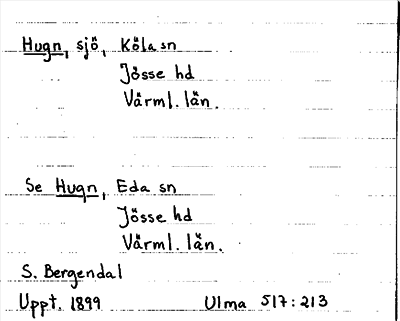 Hugn, sjö, Köla sn
Jösse hd
Värml. län.
Se Hugn, Eda sn
Jösse hd
Värml. län.
S. Bergendal
Uppt. 1899 Ulma 517:213